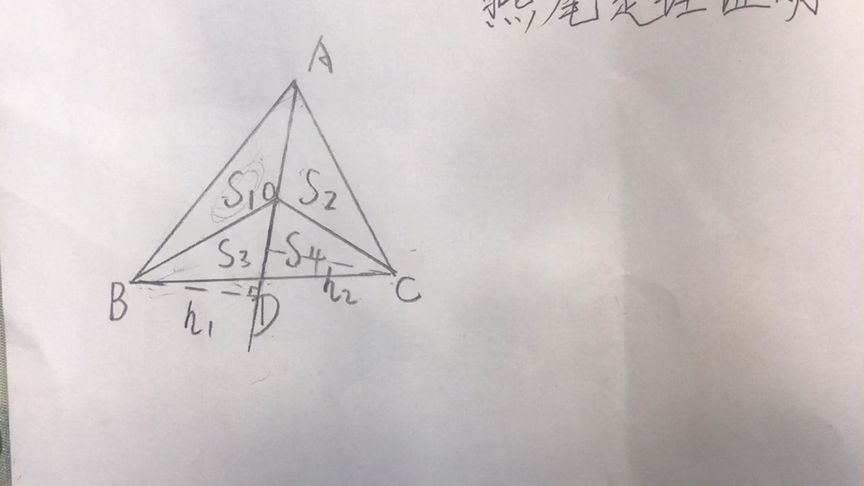 燕尾定理证明
A
S1 O S2
S3 S4
B h1 D h2 C